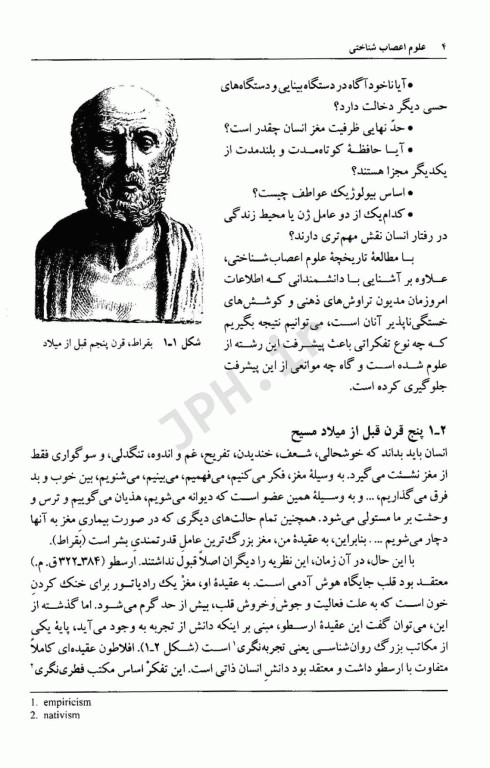 ۴ علوم اعصاب شناختی
• آیا ناخودآگاه در دستگاه بینایی و دستگاه‌های
حسی دیگر دخالت دارد؟
• حدّ نهایی ظرفیت مغز انسان چقدر است؟
• آیا حافظهٔ کوتاه‌مدت و بلندمدت از
یکدیگر مجزا هستند؟
• اساس بیولوژیک عواطف چیست؟
• کدام‌یک از دو عامل ژن یا محیط زندگی
در رفتار انسان نقش مهم‌تری دارند؟
با مطالعهٔ تاریخچهٔ علوم اعصاب‌شناختی،
علاوه بر آشنایی با دانشمندانی که اطلاعات
امروزمان مدیون تراوش‌های ذهنی و کوشش‌های
خستگی‌ناپذیر آنان است، می‌توانیم نتیجه بگیریم
که چه نوع تفکراتی باعث پیشرفت این رشته از
علوم شده است و گاه چه موانعی از این پیشرفت
جلوگیری کرده است.
شکل ۱ـ۱ بقراط، قرن پنجم قبل از میلاد
۲ـ۱ پنج قرن قبل از میلاد مسیح
انسان باید بداند که خوشحالی، شعف، خندیدن، تفریح، غم و اندوه، تنگدلی، و سوگواری فقط
از مغز نشئت می‌گیرد. به وسیلهٔ مغز، فکر می‌کنیم، می‌فهمیم، می‌بینیم، می‌شنویم، بین خوب و بد
فرق می‌گذاریم، ... و به وسیلهٔ همین عضو است که دیوانه می‌شویم، هذیان می‌گوییم و ترس و
وحشت بر ما مستولی می‌شود. همچنین تمام حالت‌های دیگری که در صورت بیماری مغز به آنها
دچار می‌شویم ... . بنابراین، به عقیدهٔ من، مغز بزرگ‌ترین عامل قدرتمندیِ بشر است (بقراط).
با این حال، در آن زمان، این نظریه را دیگران اصلاً قبول نداشتند. ارسطو (۳۸۴ـ۳۲۲ق.م.)
معتقد بود قلب جایگاه هوش آدمی است. به عقیدهٔ او، مغز یک رادیاتور برای خنک کردن
خون است که به علت فعالیت و جوش‌وخروش قلب، بیش از حد گرم می‌شود. اما گذشته از
این، می‌توان گفت این عقیدهٔ ارسطو، مبنی بر اینکه دانش از تجربه به وجود می‌آید، پایهٔ یکی
از مکاتب بزرگ روان‌شناسی یعنی تجربه‌نگری۱ است (شکل ۲ـ۱). افلاطون عقیده‌ای کاملاً
متفاوت با ارسطو داشت و معتقد بود دانش انسان ذاتی است. این تفکر اساس مکتب فطری‌نگری۲
1. empiricism
2. nativism
JPH.ir